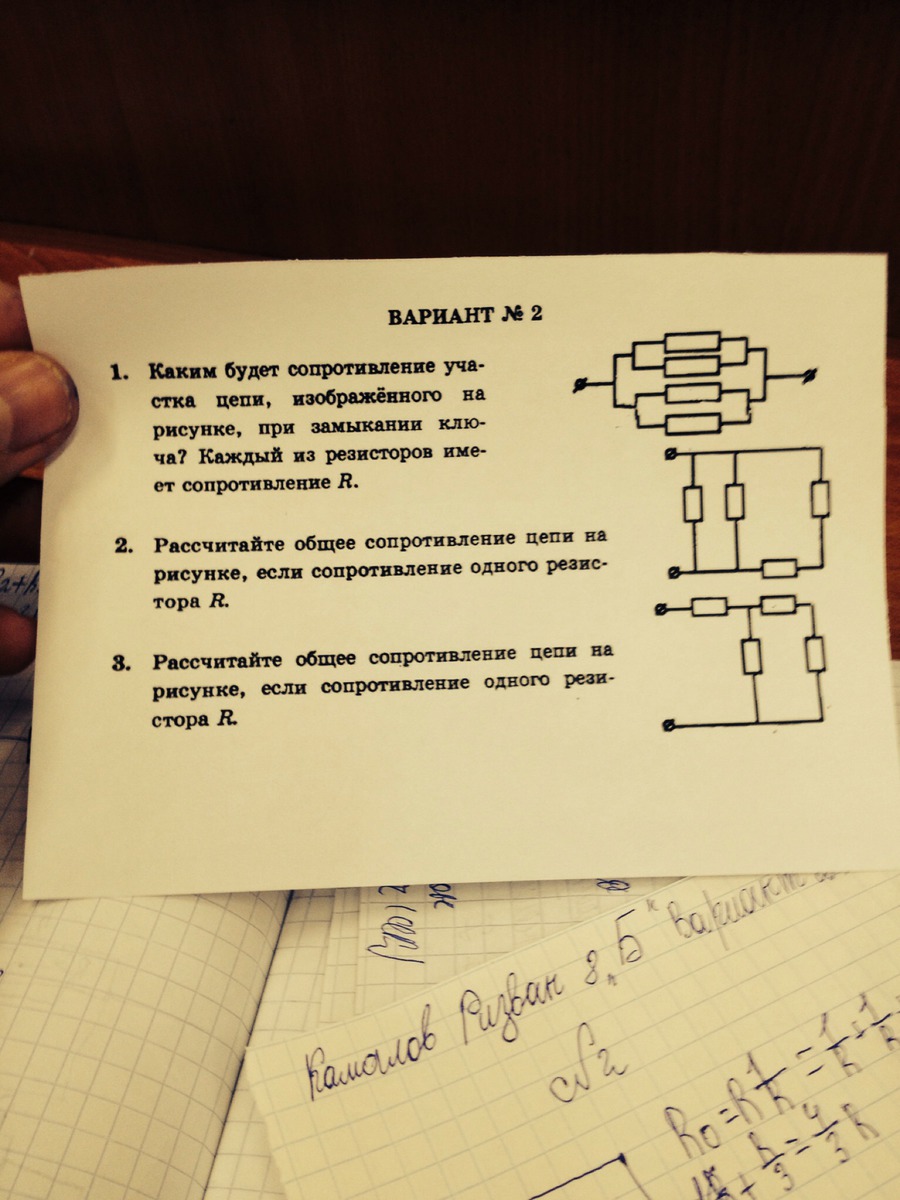 ВАРИАНТ № 2
1. Каким будет сопротивление уча-
стка цепи, изображённого на
рисунке, при замыкании клю-
ча? Каждый из резисторов име-
ет сопротивление R.
2. Рассчитайте общее сопротивление цепи на
рисунке, если сопротивление одного резис-
тора R.
3. Рассчитайте общее сопротивление цепи на
рисунке, если сопротивление одного рези-
стора R.
Камалов Ризван 8 „Б" Вариант
№2